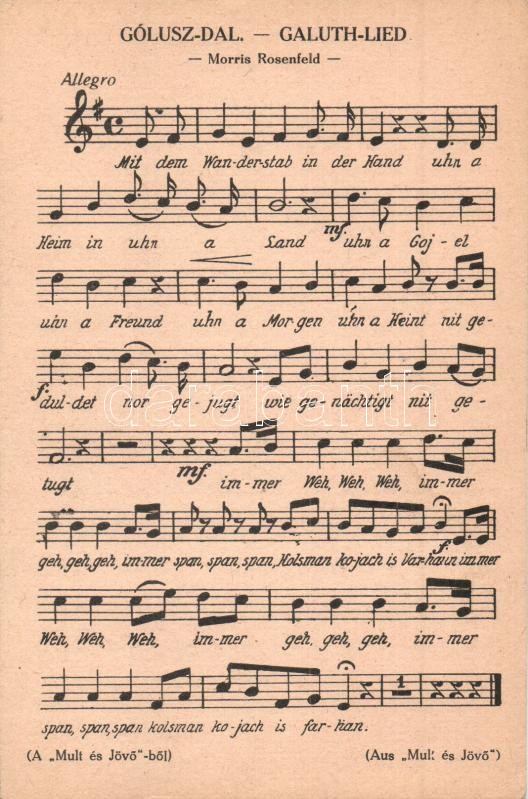 GÓLUSZ-DAL. — GALUTH-LIED
— Morris Rosenfeld —
Allegro
Mit dem Wan-der-stab in der Hand uhn a
mf.
Heim in uhn a Land uhn a Goj-el
uhn a Freund uhn a Mor-gen uhn a Heint nit ge-
f.
dul-det nor ge-jugt wie ge-nächtigt nit ge-
mf.
tugt im-mer Weh, Weh, Weh, im-mer
geh, geh, geh, im-mer span, span, span, Kolsman ko-jach is Var-haun im mer
f.
Weh, Weh, Weh, im-mer geh, geh, geh, im-mer
1
span, span, span kolsman ko-jach is far-han.
(A „Mult és Jövő“-ből) (Aus „Mult és Jövő“)
darabanth